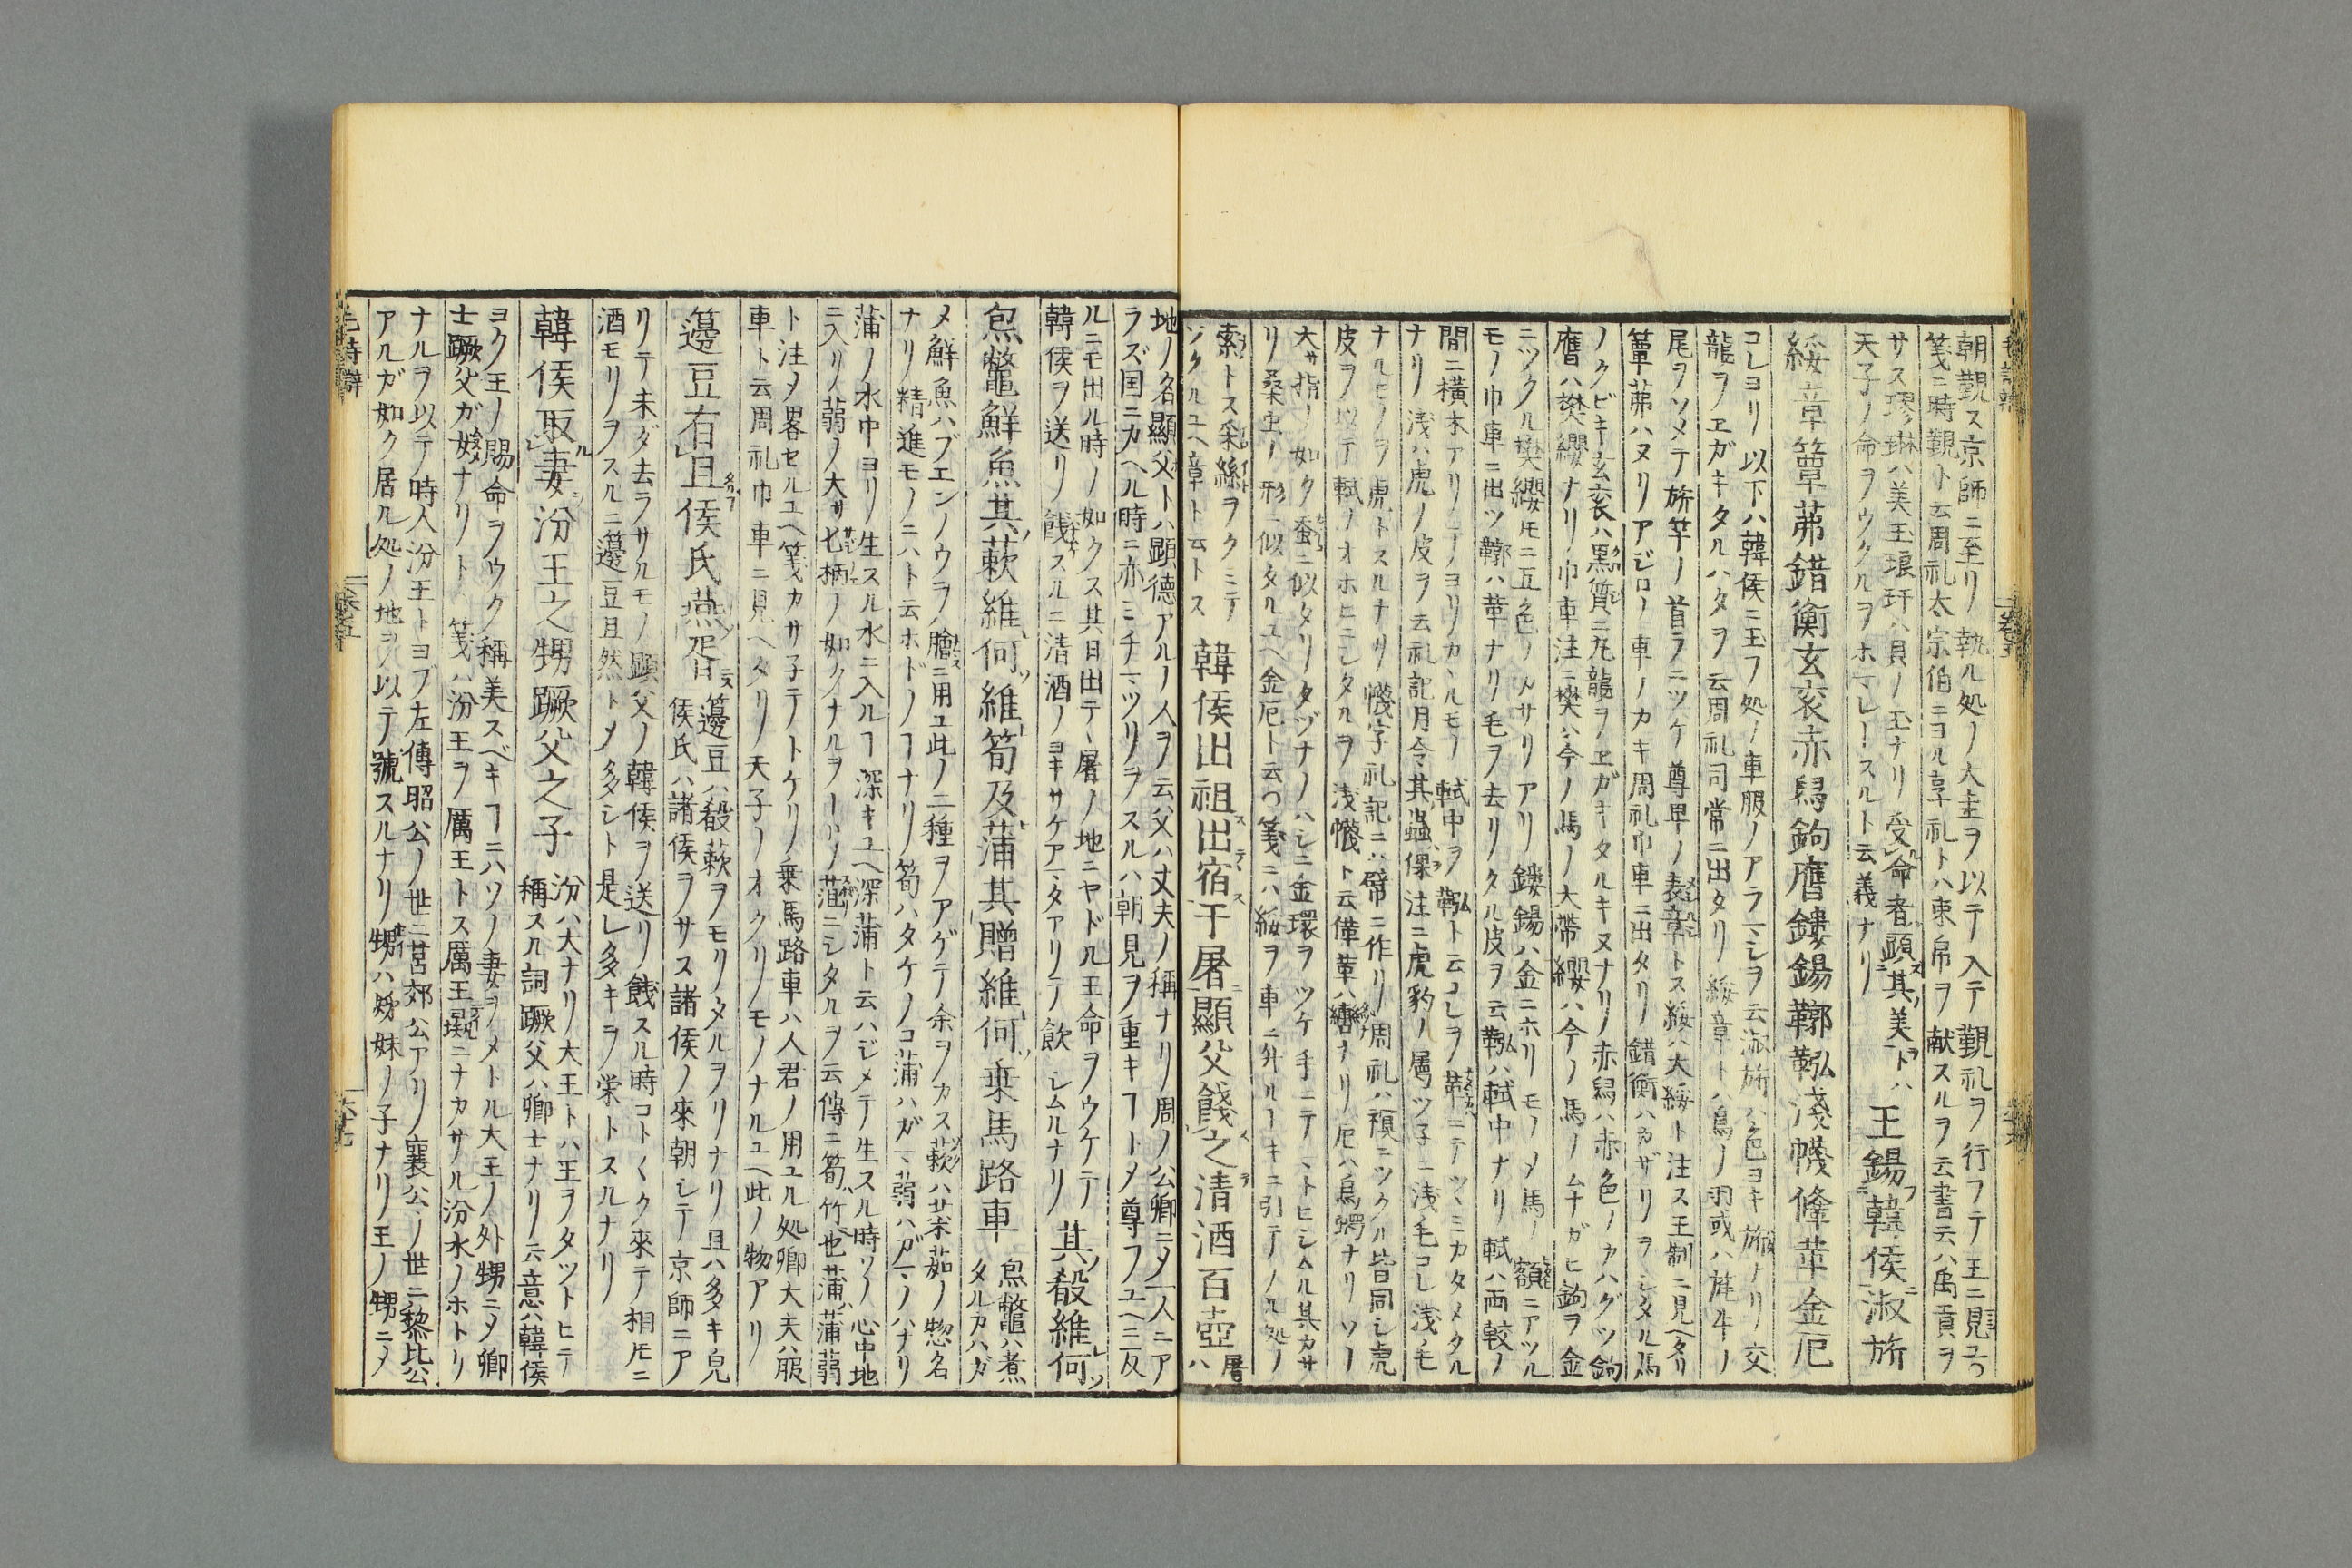 朝覲ス京師ニ至リノ執ル処ノ大圭ヲ以テ入テ覲礼ヲ行フテ王ニ見ユ
箋ニ時覲ト云周礼大宗伯ニヨル享礼トハ束帛ヲ献スルヲ云書云ハ禹貢ヲ
サス璆琳ハ美玉琅玕ハ貝ノ玉ナリ受命者顕其美トハ
天子ノ命ヲウクルヲホマレースルト云義ナリ
王錫韓侯淑旂
綏章簟茀錯衡玄袞赤舄鉤膺鏤鍚鞹鞃淺幭鞗革金厄
コレヨリ以下ハ韓侯ニ玉フ処ノ車服ノアラマシヲ云淑旂ハ色ヨキ旂ナリ交
龍ヲヱガキタルハタヲ云周礼司常ニ出タリ綏章トハ鳥ノ羽或ハ旄牛ノ
尾ヲソメテ旂竿ノ首ラニツケノ尊卑ノ表章トス綏ハ大綏ト注ス王制ニ見ヘタリ
簟茀ハヌリアジロノ車ノカキ周礼巾車ニ出タリ錯衡ハカザリヲシタル馬
ノクビキ玄袞ハ黒質ニ九龍ヲヱガキタルキヌナリ赤舄ハ赤色ノカハグツ鉤
膺ハ樊纓ナリ巾車注ニ樊ハ今ノ馬ノ大帯纓ハ今ノ馬ノムナガヒ鉤ヲ金
ニツクル樊纓モニ五色ノカサリアリ鏤鍚ハ金ニホリモノメ馬ノ額ニアツル
モノ巾車ニ出ツ鞹ハ革ナリ毛ヲ去リタル皮ヲ云鞃ハ軾中ナリ軾ハ両較ノ
間ニ横木アリテヨリカヽルモノ軾中ヲ鞃ト云コレヲ革ニテツヽミカタメタル
ナリ浅ハ虎ノ皮ヲ云礼記月令其蟲倮注ニ虎豹ノ属ツ子ニ浅毛コレ浅ノモ
ナルモノヲ虎トスルナリ幭字礼記ニハ幦ニ作リ周礼ハ𧜀ニツクル皆同シ虎
皮ヲ以テ軾ノオホヒニシタルヲ浅幭ト云鞗革ハ轡ナリ厄ハ烏蠋ナリソノ
大サ指ノ如ク蚕ニ似タリタヅナノハシニ金環ヲツケ手ニテマトヒシムル其カサ
リ桑虫ノ形ニ似タルユヘ金厄ト云フ箋ニハ綏ヲ車ニ升ルーキニ引テノル処ノ
索トス采絲ヲクミテ
ツクルユヘ章ト云トス
韓侯出祖出宿于屠顯父餞之清酒百壺
屠
ハ
地ノ名顯父トハ顕徳アルノ人ヲ云父ハ丈夫ノ称ナリ周ノ公卿ニメ一人ニア
ラズ国ニカヘル時ニ亦ミチマツリヲスルハ朝見ヲ重キフトメ尊フユヘニ反
ルニモ出ル時ノ如クス其日出テヽ屠ノ地ニヤドル王命ヲウケテ
韓侯ヲ送リ餞スルニ清酒ノヨキサケアマタアリテ飲シムルナリ
其殽維何
炰鼈鮮魚其蔌維何維筍及蒲其贈維何乗馬路車
炰鼈ハ煮
タルカハガ
メ鮮魚ハブエンノウヲノ膾ニ用ユ此ノ二種ヲアゲテ余ヲカス蔌ハ菜茹ノ惣名
ナリ精進モノニハト云ホドノフナリ筍ハタケノコ蒲ハガマ蒻ハガマノハナリ
蒲ノ水中ヨリ生スル水ニ入ルフ深キユヘ深蒲ト云ハジメテ生スル時ソノ心中地
ニ入リ蒻ノ大サ匕柄ノ如クナルヲーリソ葅ニシタルヲ云傳ニ筍竹也蒲蒲蒻
ト注メ畧セルユヘ箋カサ子テトケリ乗馬路車ハ人君ノ用ユル処卿大夫ハ服
車ト云周礼巾車ニ見ヘタリ天子ノオクリモノナルユヘ此ノ物アリ
籩豆有且侯氏燕胥
籩豆ハ殽蔌ヲモリタルヲリナリ且ハ多キ皃
侯氏ハ諸侯ヲサス諸侯ノ來朝シテ京師ニア
リテ未ダ去ラサルモノ顕父ノ韓侯ヲ送リ餞スル時コト〱ク來テ相モニ
酒モリヲスルニ籩豆且然トメ多シト是レ多キヲ栄トスルナリ
韓侯取妻汾王之甥蹶父之子
汾ハ大ナリ大王トハ王ヲタツトヒテ
称スル詞蹶父ハ卿士ナリ云意ハ韓侯
ヨク王ノ賜命ヲウク称美スベキフニハソノ妻ヲメトル大王ノ外甥ニメ卿
士蹶父ガ女ナリト箋ハ汾王ヲ厲王トス厲王彘ニナカサル汾水ノホトリ
ナルヲ以テ時人汾王トヨブ左傳昭公ノ世ニ莒郊公アリ襄公ノ世ニ黎比公
アルガ如ク居ル処ノ地ヲ以テ號スルナリ甥ハ姉妹ノ子ナリ王ノ甥ニメ
毛詩辯
巻五
六十七